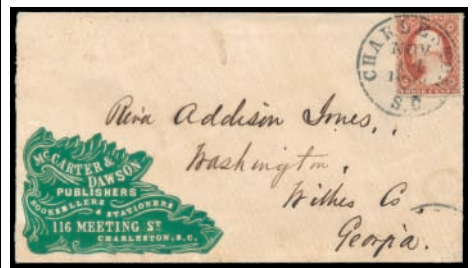 CHARLES
NOV
4
S.C
THREE CENTS
Addison Jones,
Washington,
Wilkes Co
Georgia.
McCARTER &
DAWSON
PUBLISHERS
BOOKSELLERS & STATIONERS
116 MEETING ST
CHARLESTON, S.C.